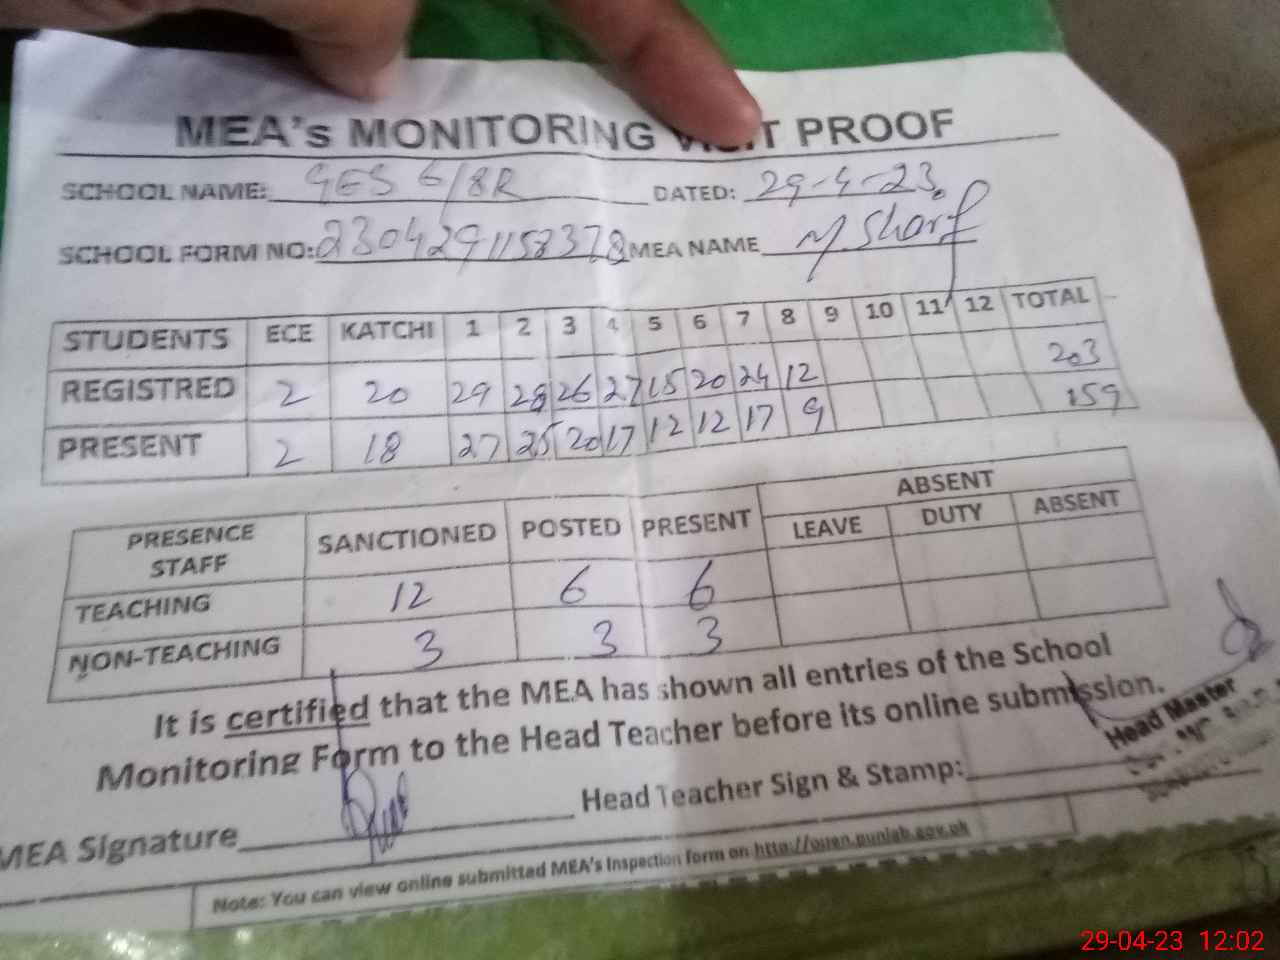 MEA's MONITORING VISIT PROOF
SCHOOL NAME: GES 6/8R DATED: 29-4-23.
SCHOOL FORM NO: 230429115837 8 MEA NAME M Sharf
STUDENTS ECE KATCHI 1 2 3 4 5 6 7 8 9 10 11 12 TOTAL
REGISTRED 2 20 29 28 26 27 15 20 24 12 203
PRESENT 2 18 27 25 20 17 12 12 17 9 159
PRESENCE STAFF SANCTIONED POSTED PRESENT ABSENT
LEAVE DUTY ABSENT
TEACHING 12 6 6
NON-TEACHING 3 3 3
It is certified that the MEA has shown all entries of the School
Monitoring Form to the Head Teacher before its online submission.
MEA Signature Head Teacher Sign & Stamp:
Head Master
Note: You can view online submitted MEA's Inspection form on http://open.punjab.gov.pk
29-04-23 12:02